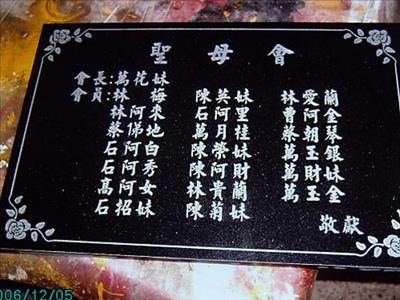 聖母會
會長:萬花妹
會員:林 梅 陳英妹 林愛蘭
林阿來 石阿里 曹阿金
蔡俤地 萬月桂 蔡朝琴
石阿白 石榮妹 萬玉銀
石阿秀 陳阿財 萬財妹
高阿女 林貴蘭 萬玉金
石招妹 陳菊妹
敬獻
006/12/05